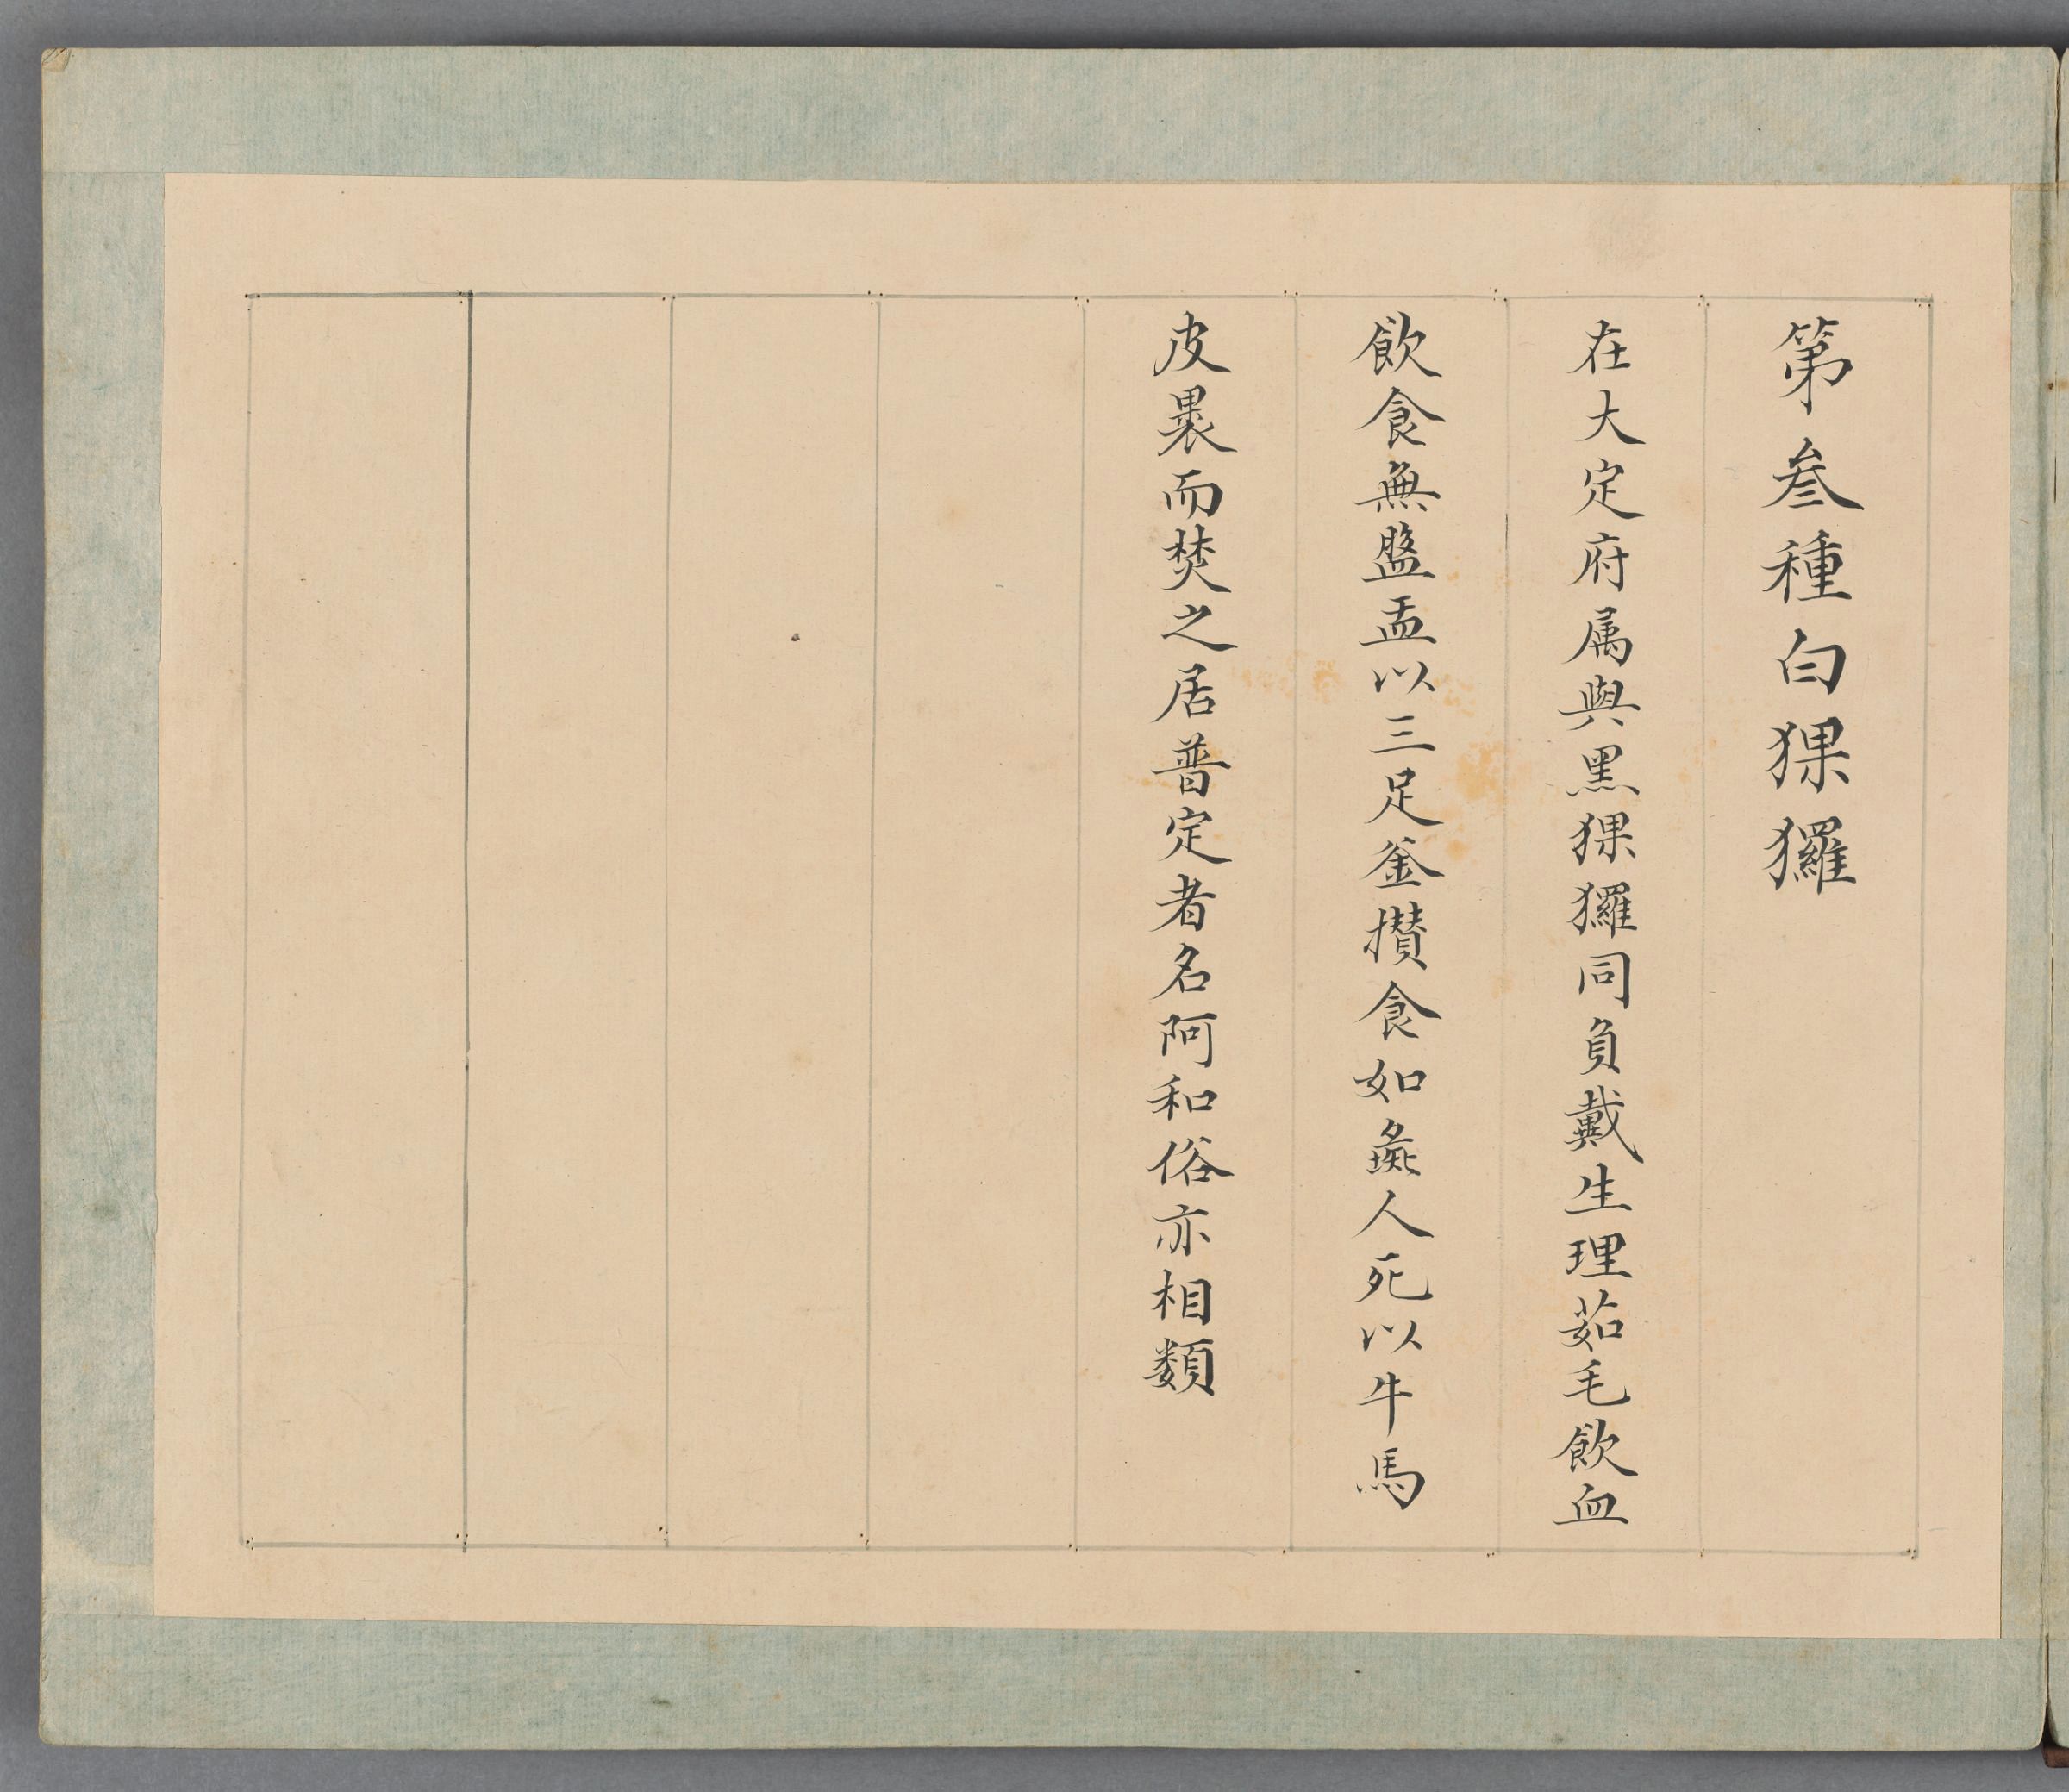 第叁種白猓玀
在大定府属與黑猓玀同負戴生理茹毛飲血
飲食無盤盂以三足釜攅食如彘人死以牛馬
皮褁而焚之居普定者名阿和俗亦相類